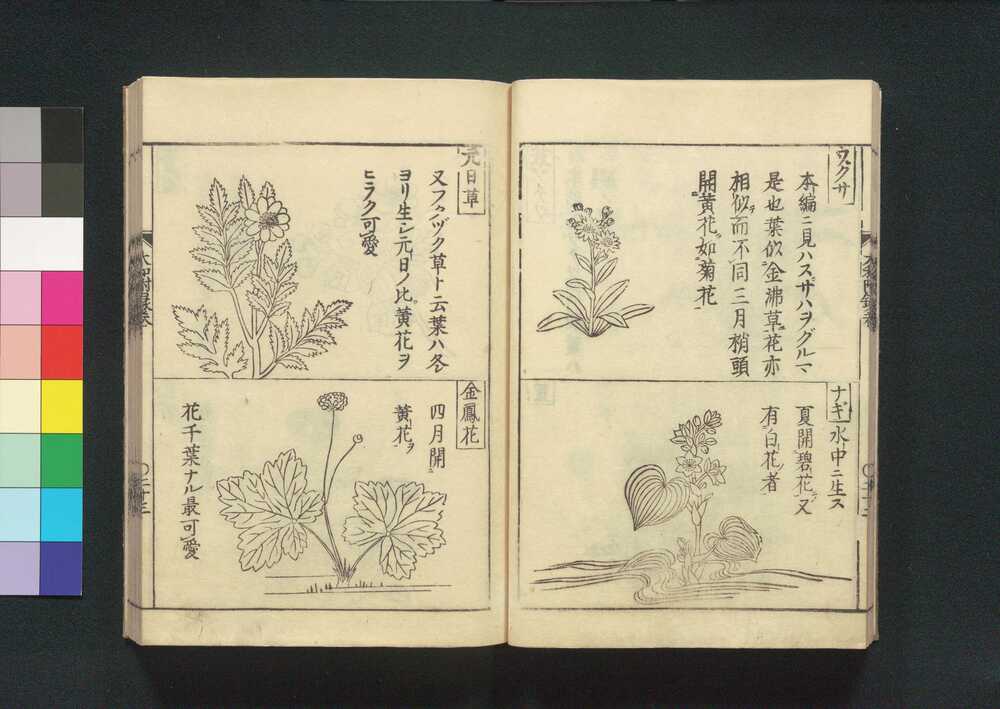 ウスクサ
本編ニ見ハスサハヲグルマ
是也葉似金沸草花亦
相似而不同三月梢頭
開黄花如菊花
ナギ
水中ニ生ス
夏開碧花又
有白花者
元日草
又フクヅク草ト云葉ハ冬
ヨリ生シ元日ノ比黄花ヲ
ヒラク可愛
金鳳花
四月開
黄花ヲ
花千葉ナル最可愛
大和附録巻
二十三